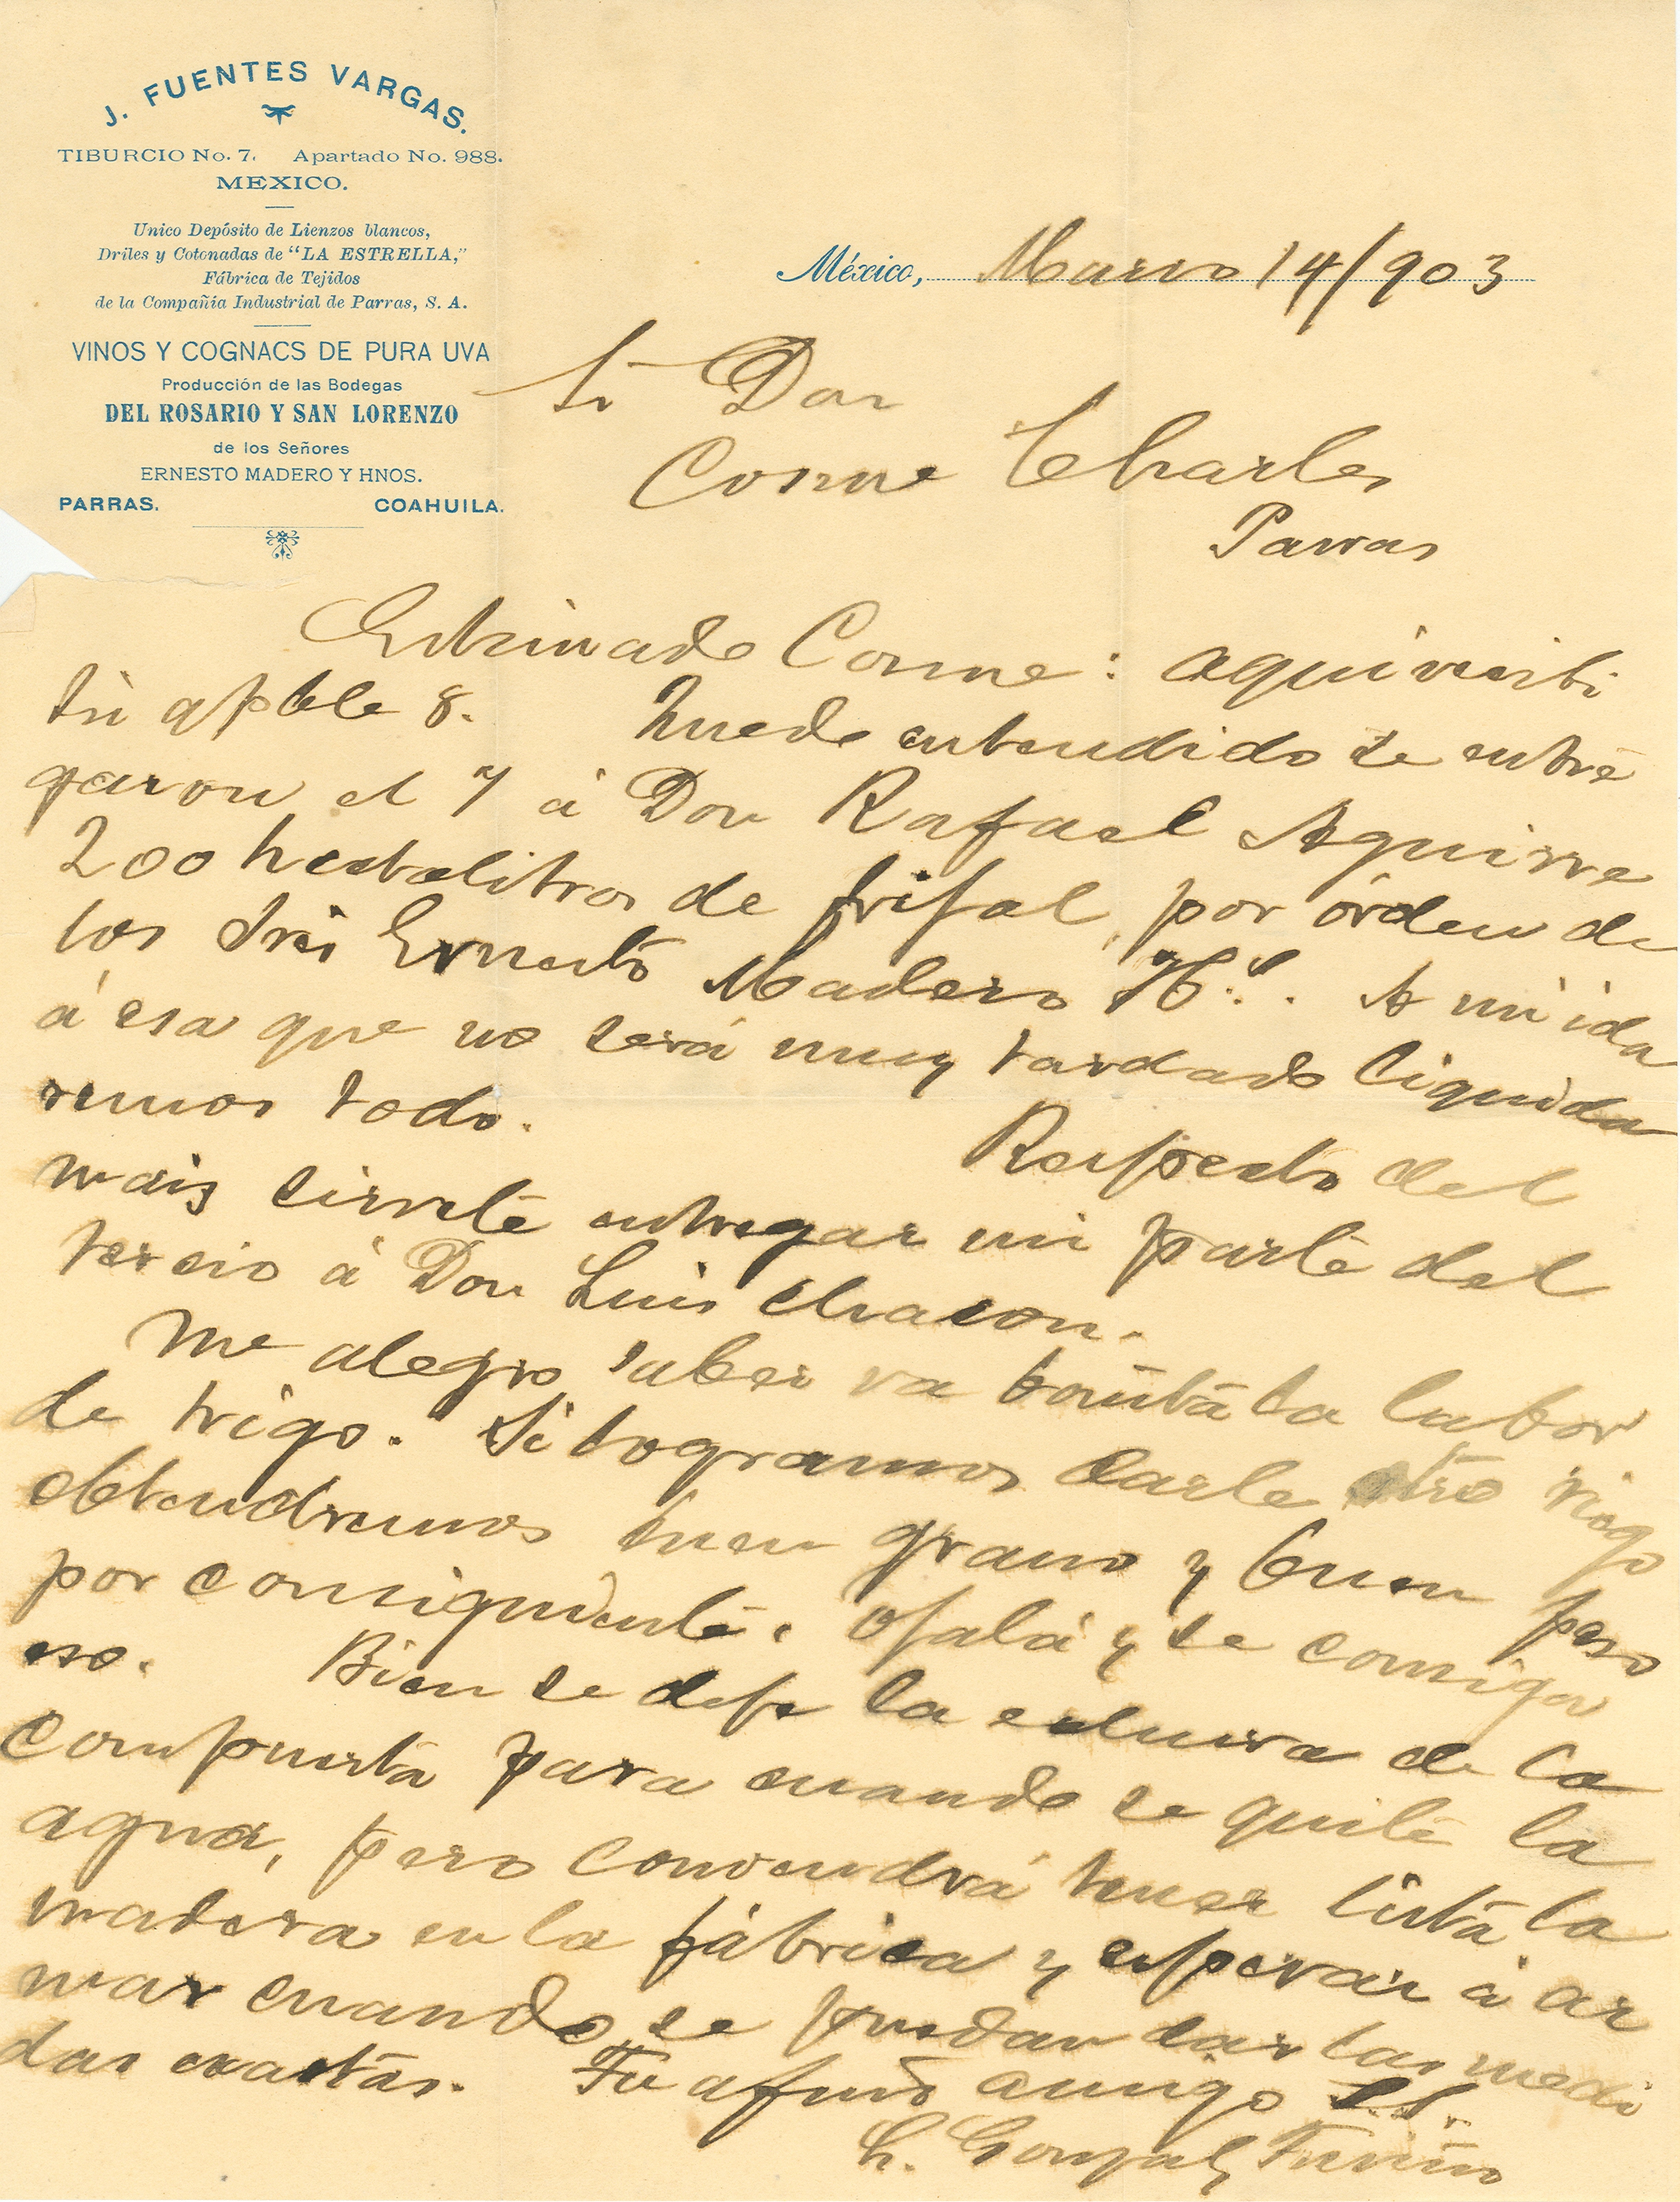 J. FUENTES VARGAS.
TIBURCIO No. 7. Apartado No. 988.
MEXICO.
Unico Depósito de Lienzos blancos,
Driles y Cotonadas de "LA ESTRELLA,"
Fábrica de Tejidos
de la Compañía Industrial de Parras, S. A.
VINOS Y COGNACS DE PURA UVA
Producción de las Bodegas
DEL ROSARIO Y SAN LORENZO
de los Señores
ERNESTO MADERO Y HNOS.
PARRAS. COAHUILA.
México, Marzo 14/903
Sr Don
Cosme Charles
Parras
Estimado Cosme: aqui recibi
tú apble 8. Quedo entendido se entre
garon el 7 á Don Rafael Aguirre
200 hectolitros de frijol, por órden de
los Sres Ernesto Madero Hs. A mi ida
á esa que no será muy tardado liquida
remos todo.
Respecto del
maiz sirvete entregar mi parte del
tercio á Don Luis Chacon.
Me alegro saber va bonita la labor
de trigo. Si logramos darle otro riego
obtendremos buen grano y buen peso
por consiguiente. Ojalá y se consiga
eso. Bien se deje la de la
compuerta para cuando se quite la
agua, pero convendrá tener lista la
madera en la fábrica y esperar á ar
mar cuando se puedan dar las medi
das exactas. Tu afmo amigo SS.
Gonzalz Treviño